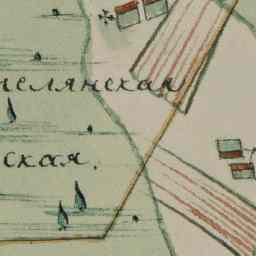 аслянская
ская.